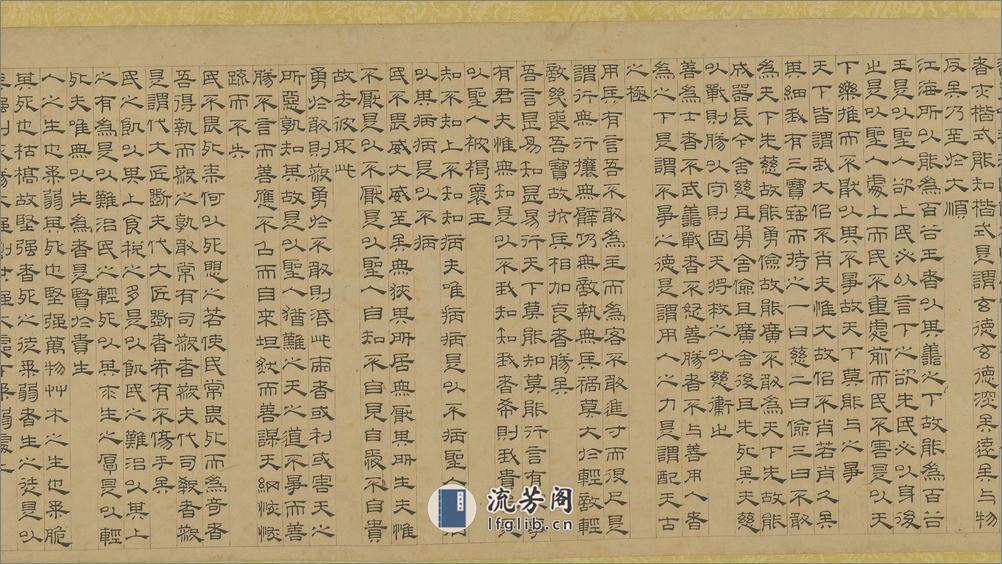 者亦楷式能知楷式是謂玄德玄德深矣遠矣与物
反矣乃至於大順
江海所以能為百谷王者以其善下故能為百谷
王是以聖人欲上民必以言下之欲先民必以身後
之是以聖人處上而民不重處前而民不害是以天
下樂推而不猒以其不爭故天下莫能与之爭
天下皆謂我大似不肖夫惟大故似不肖若肖久矣
其細我有三寶持之一曰慈二曰儉三曰不敢
為天下先慈故能勇儉故能廣不敢為天下先故能
成器長今舍慈且勇舍儉且廣舍後且先死矣夫慈
以戰則勝以守則固天將救之以慈衛之
善為士者不武善戰者不怒善勝者不与善用人者
為之下是謂不爭之德是謂用人之力是謂配天古
之極
用兵有言吾不敢為主而為客不敢進寸而退尺是
謂行無行攘無臂仍無敵執無兵禍莫大於輕敵輕
敵幾喪吾寶故抗兵相加哀者勝矣
吾言甚易知甚易行天下莫能知莫能行言有
有君夫惟無知是以不我知知我者希則我貴
以聖人被褐懷玉
知不知上不知知病夫唯病病是以不病聖病
以其病病是以不病
民不畏威大威至矣無狹其所居無厭其所生夫惟
不厭是以不厭是以聖人自知不自見自愛不自貴
故去彼取此
勇於敢則殺勇於不敢則活此兩者或利或害天之
所惡孰知其故是以聖人猶難之天之道不爭而善
勝不言而善應不召而自来坦然而善謀天網恢恢
疏而不失
民不畏死柰何以死懼之若使民常畏死而為奇者
吾得執而殺之孰敢常有司殺者殺夫代司殺者殺
是謂代大匠斲夫代大匠斲者希有不傷手矣
民之飢以其上食稅之多是以飢民之難治以其上
之有為是以難治民之輕死以其求生之厚是以輕
死夫唯無以生為者是賢於貴生
人之生也柔弱其死也堅强萬物艸木之生也柔脆
其死也枯槁故堅强者死之徒柔弱者生之徒是以
流芳阁
lfglib.cn